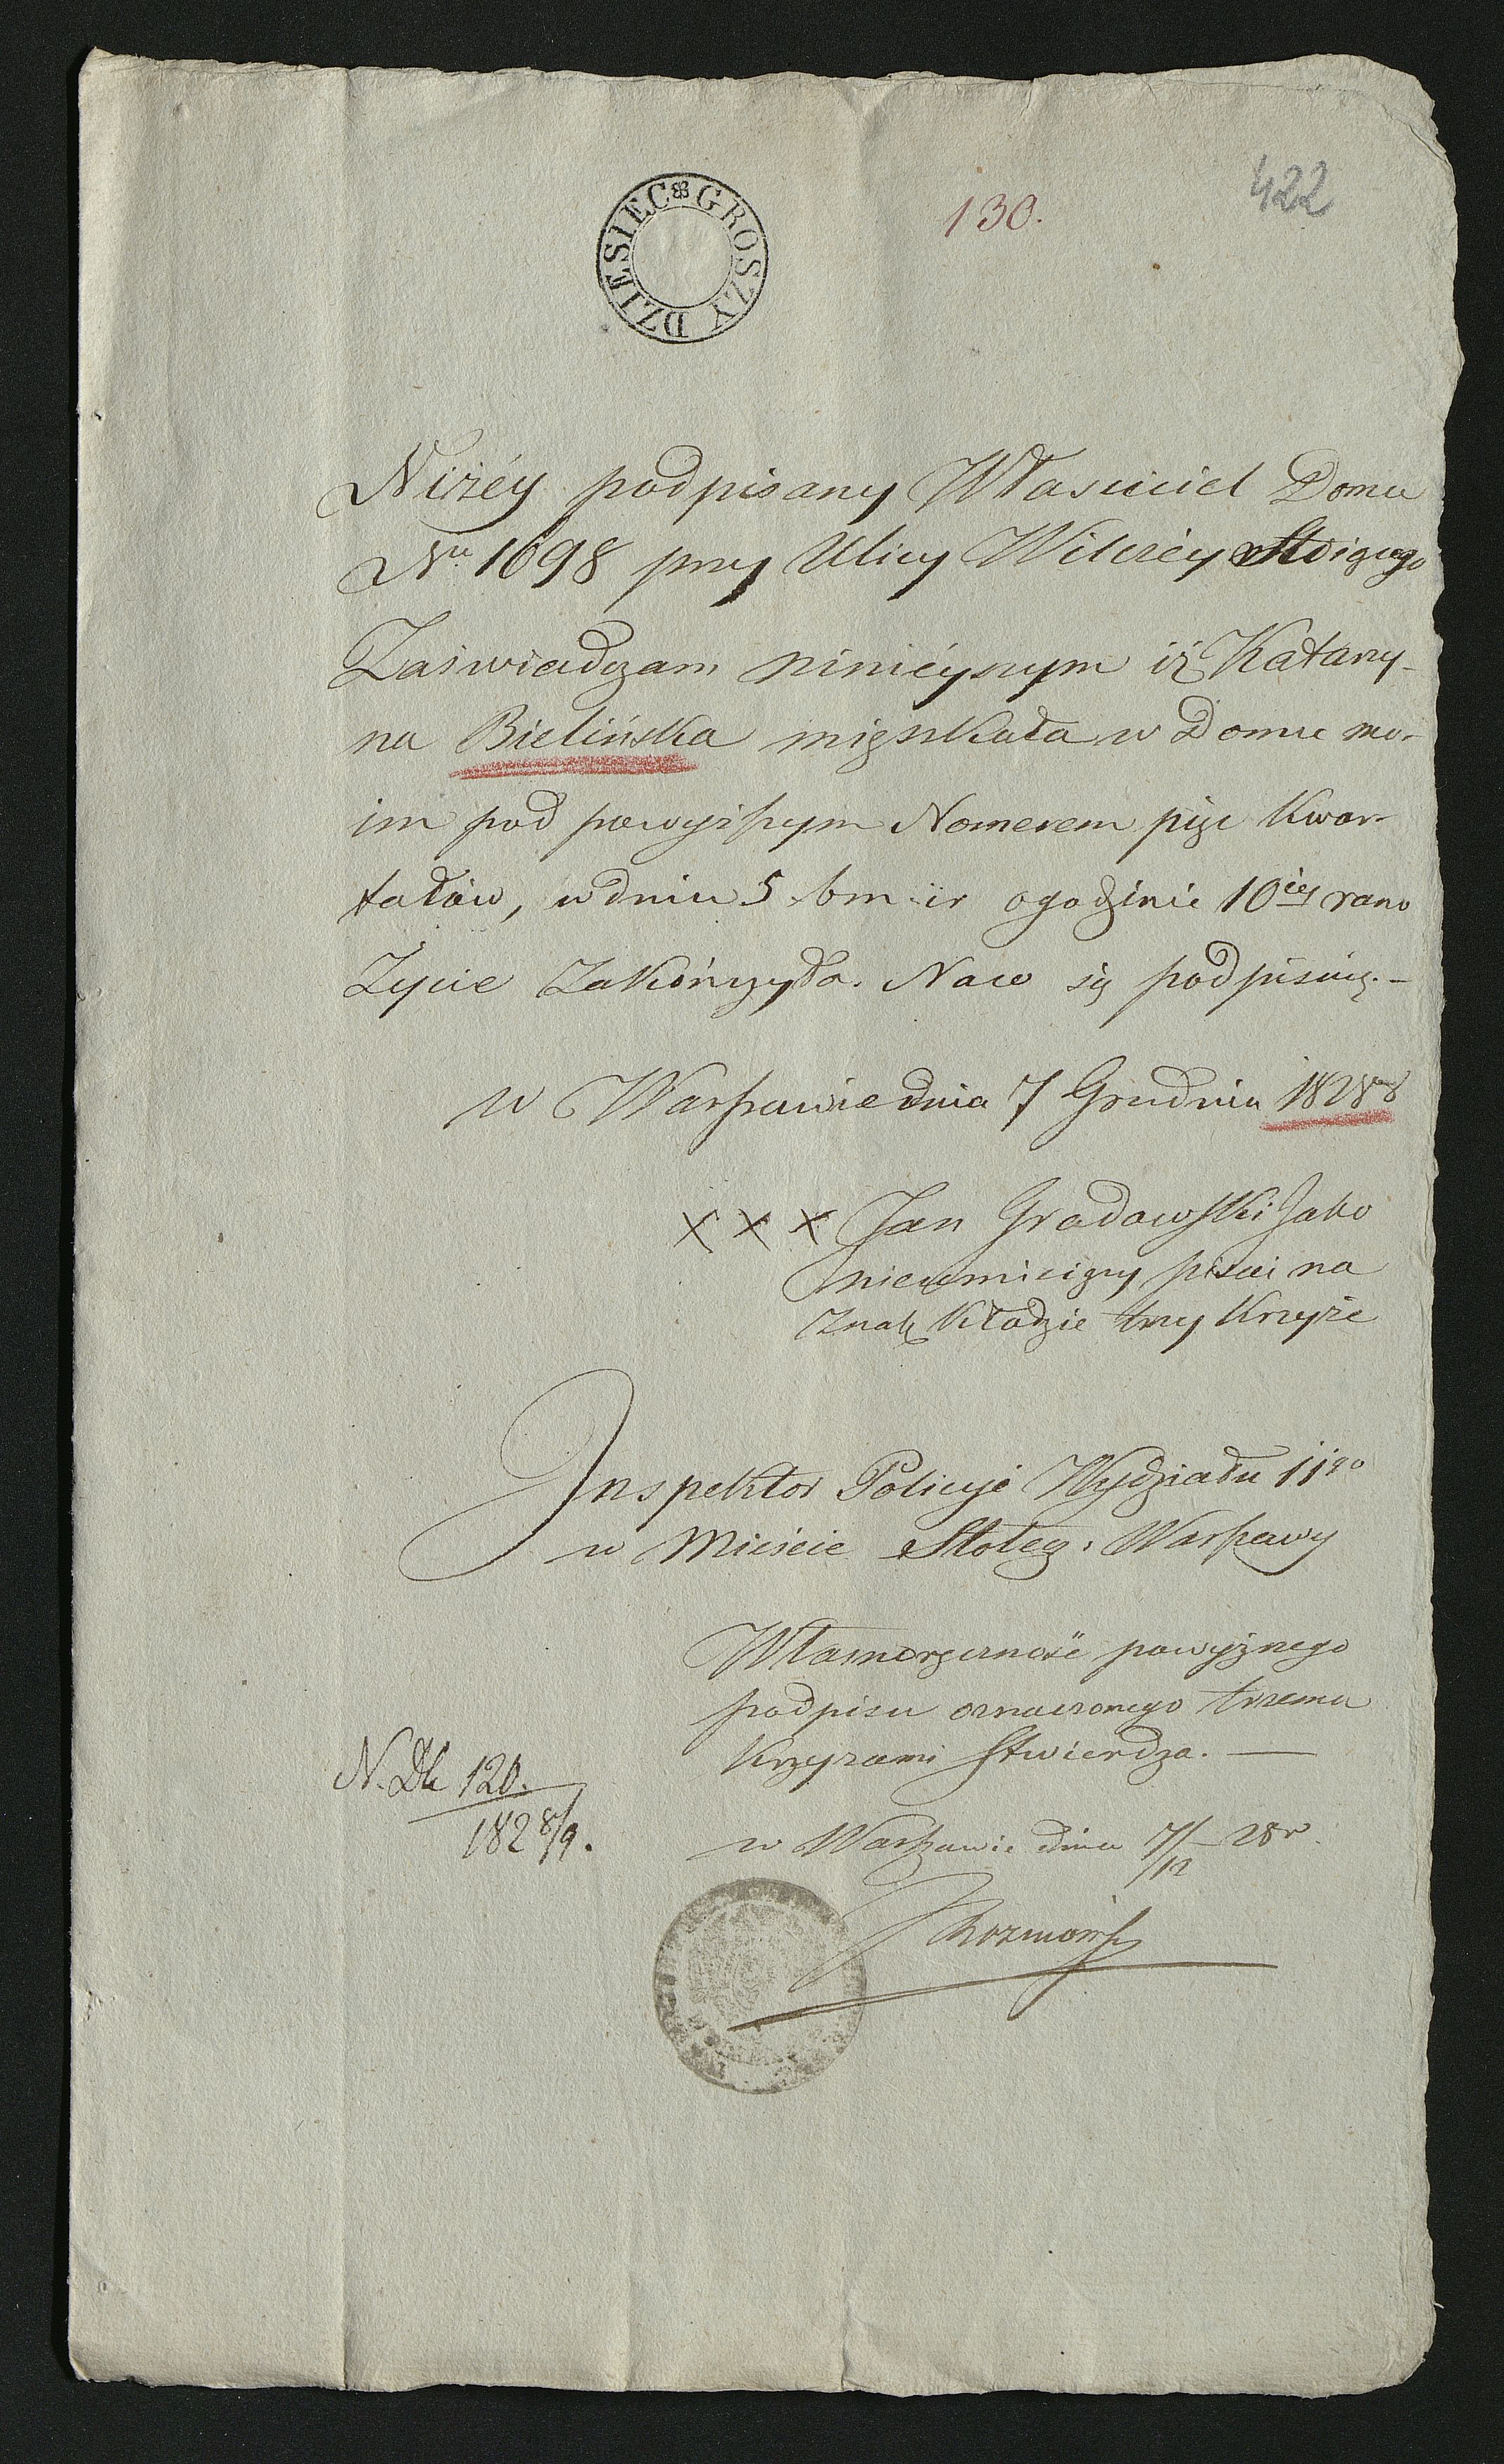 422
130.
DZIESIĘC GROSZY
Niżéy podpisany Własciciel Domu
Nr 1698 przy Ulicy Wilczéy Stoiącego
Zaświadczam niniéyszym iż Katarzy-
na Bielińska mięszkała w Domu mo-
im pod powyższym Nomerem pięc Kwar-
tałów, w dniu 5 bm ir o godzinie 10iéy rano
Zycie Zakończyła. Naco się podpisuię.-
w Warszawie dnia 7 Grudnia 1828
x x x Jan Gradowski Jako
nieumieiący pisać na
Znak Kładzie trzy Krzyże
Inspektor Policyi Wydziału 11go
w Mieście Stołecz: Warszawy
Własnoręczność powyższego
podpisu oznaczonego trzema
Krzyżami Stwierdza. —
N. Dk 120.
1828/9.
w Warszawie dnia 7/12 28r.